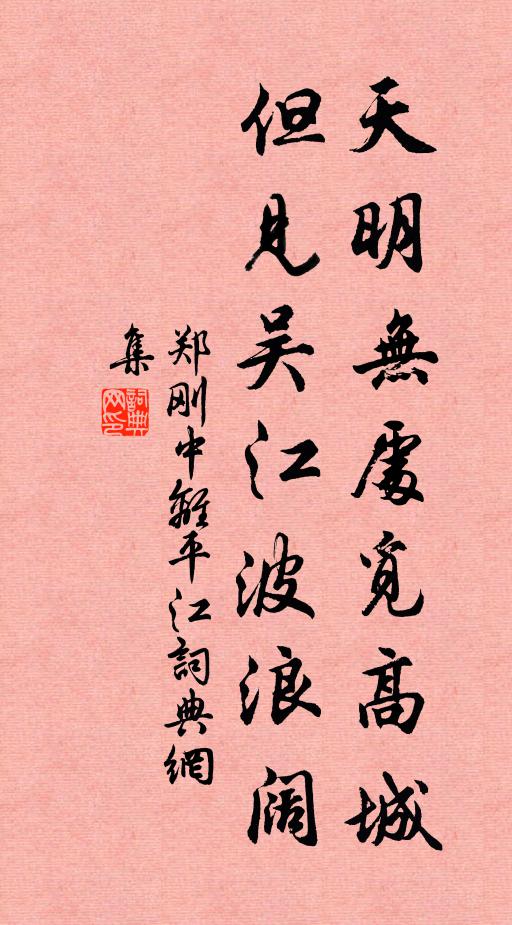 天明無處覓高城
但見吴江波浪阔
郑刚中離平江詞典網
集
詞典網印